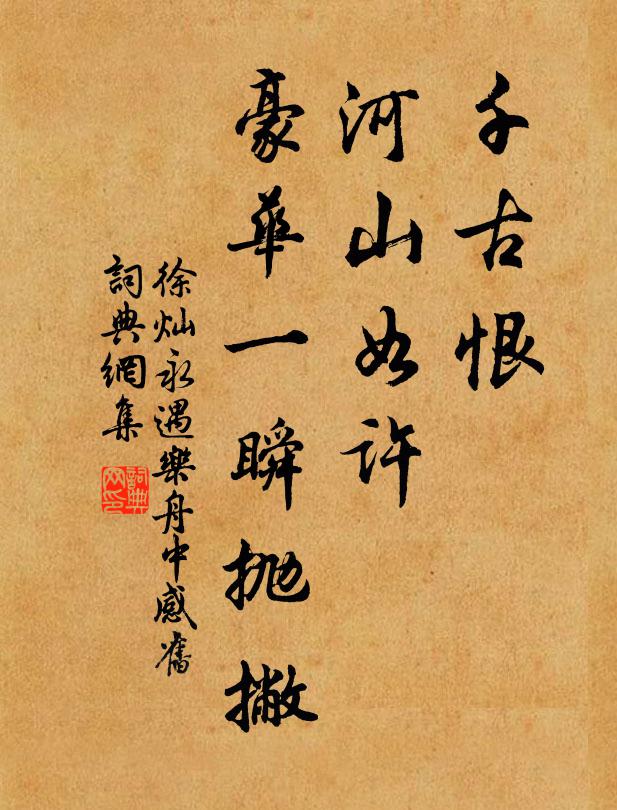 千古恨
河山如许
豪華一瞬抛撇
徐灿永遇樂舟中感舊
詞典網集
詞典网印